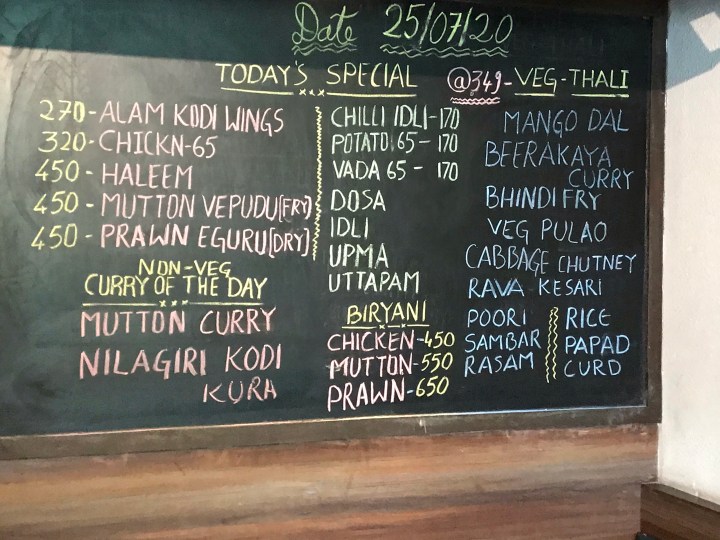 Date 25/07/20
TODAY'S SPECIAL
270-ALAM KODI WINGS
320-CHICKN-65
450-HALEEM
450-MUTTON VEPUDU(FRY)
450-PRAWN EGURU(DRY)
NON-VEG
CURRY OF THE DAY
MUTTON CURRY
NILAGIRI KODI
KURA
CHILLI IDLI-170
POTATO 65-170
VADA 65-170
DOSA
IDLI
UPMA
UTTAPAM
BIRYANI
CHICKEN-450
MUTTON-550
PRAWN-650
@349-VEG-THALI
MANGO DAL
BEERAKAYA
CURRY
BHINDI FRY
VEG PULAO
CABBAGE CHUTNEY
RAVA KESARI
POORI
SAMBAR
RASAM
RICE
PAPAD
CURD